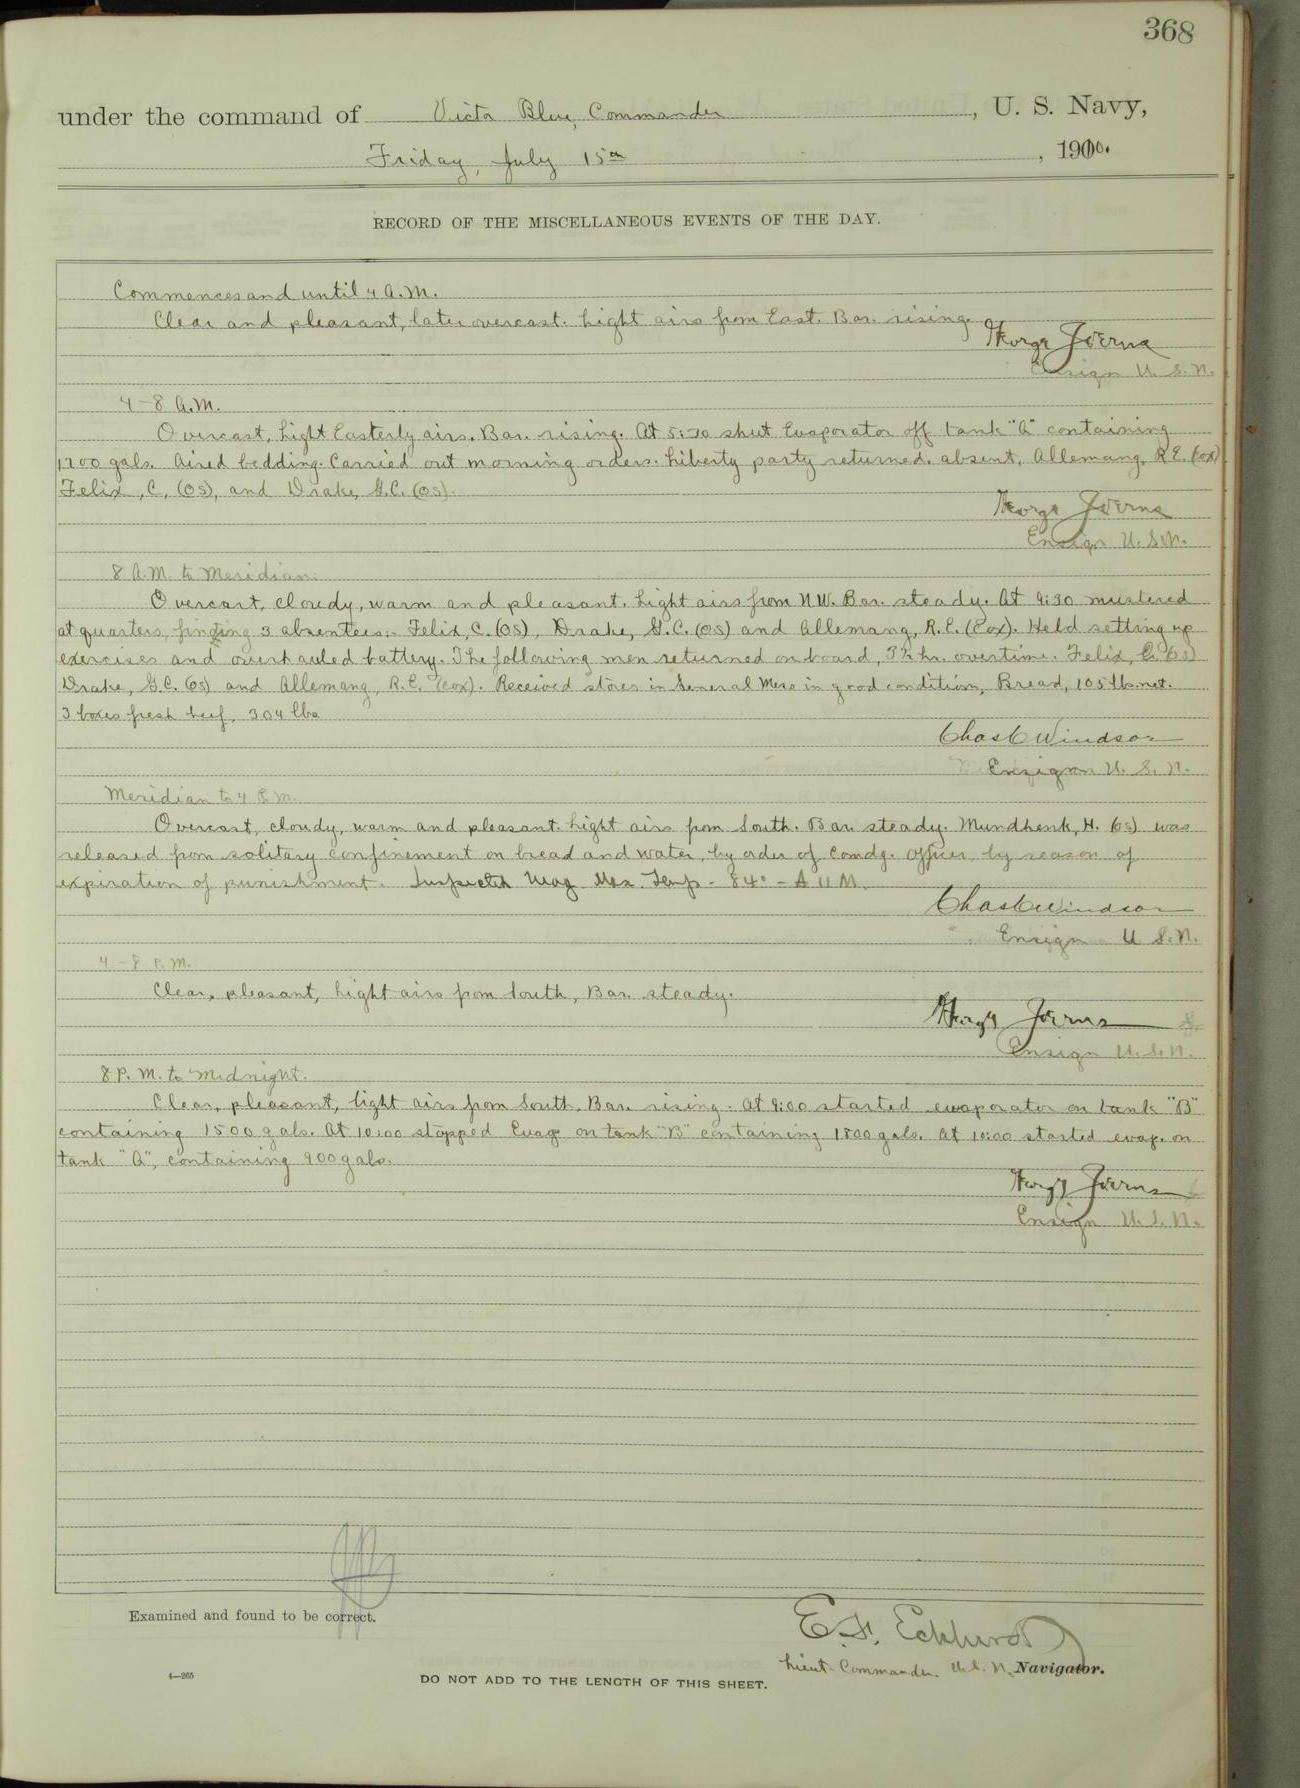 368
under the command of Victor Blue, Commander, U. S. Navy,
Friday, July 15th, 1910.
RECORD OF THE MISCELLANEOUS EVENTS OF THE DAY.
Commences and until 4 A.M.
Clear and pleasant, later overcast. Light airs from East. Bar. rising.
George Joerns
Ensign U. S. N.
4-8 A.M.
Overcast, Light Easterly airs. Bar. rising. At 5:30 shut Evaporator off tank "A" containing
1700 gals. Aired bedding. Carried out morning orders. Liberty party returned. absent, Allemang, R.E. (Cox)
Felix, C. (OS), and Drake, G.C. (OS).
George Joerns
Ensign U. S. N.
8 A.M. to Meridian:
Overcast, cloudy, warm and pleasant. Light airs from NW. Bar. steady. At 9:30 mustered
at quarters, finding 3 absentees:- Felix, C. (OS), Drake, G.C. (OS) and Allemang, R.E. (Cox). Held setting up
exercises and overhauled battery. The following men returned on board, hr. overtime. Felix, C. (OS)
Drake, G.C. (OS) and Allemang, R.E. (Cox). Received stores in General Mess in good condition, Bread, 105 lbs. net.
3 boxes fresh beef, 304 lbs
Chas C Windsor
Ensign U. S. N.
Meridian to 4 P.M.
Overcast, cloudy, warm and pleasant. Light airs from South. Bar. steady. Mundhenk, H. (OS) was
released from solitary confinement on bread and water, by order of Comdg. Officer, by reason of
expiration of punishment. Inspected Mag Max. Temp - 84° -
Chas C Windsor
Ensign U. S. N.
4-8 P.M.
Clear, pleasant, light airs from South, Bar. steady.
George Joerns
Ensign U. S. N.
8 P. M. to Midnight.
Clear, pleasant, light airs from South, Bar. rising. At 9:00 started evaporator on tank "B"
containing 1500 gals. At 10:00 stopped Evap on tank "B" containing 1800 gals. At 10:00 started evap. on
tank "A", containing 900 gals.
George Joerns
Ensign U. S. N.
Examined and found to be correct.
E. F. Eckhardt
Lieut. Commander U. S. N. Navigator.
4—265
DO NOT ADD TO THE LENGTH OF THIS SHEET.